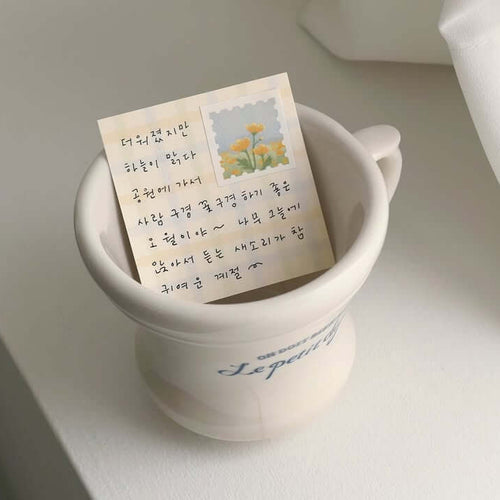 더워졌지만
하늘이 맑다
공원에 가서
사람 구경 꽃구경하기 좋은
오월이야~ 나무 그늘에
앉아서 듣는 새소리가 참
귀여운 계절
Le petit